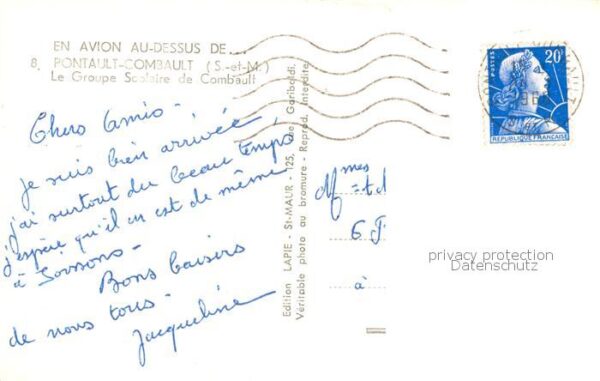 EN AVION AU-DESSUS DE...
8. PONTAULT-COMBAULT (S.-et-M.)
Le Groupe Scolaire de Combault
Chers Amis -
je suis bien arrivée,
j'ai surtout du beau temps
j'espère qu'il en est de même
à Soissons -
Bons baisers
de nous tous -
Jacqueline
Edition LAPIE - St-MAUR - 125, rue Garibaldi.
Véritable photo au bromure - Reprod. Interdite.
mes
à
POSTES
20F
REPUBLIQUE FRANÇAISE
privacy protection
Datenschutz